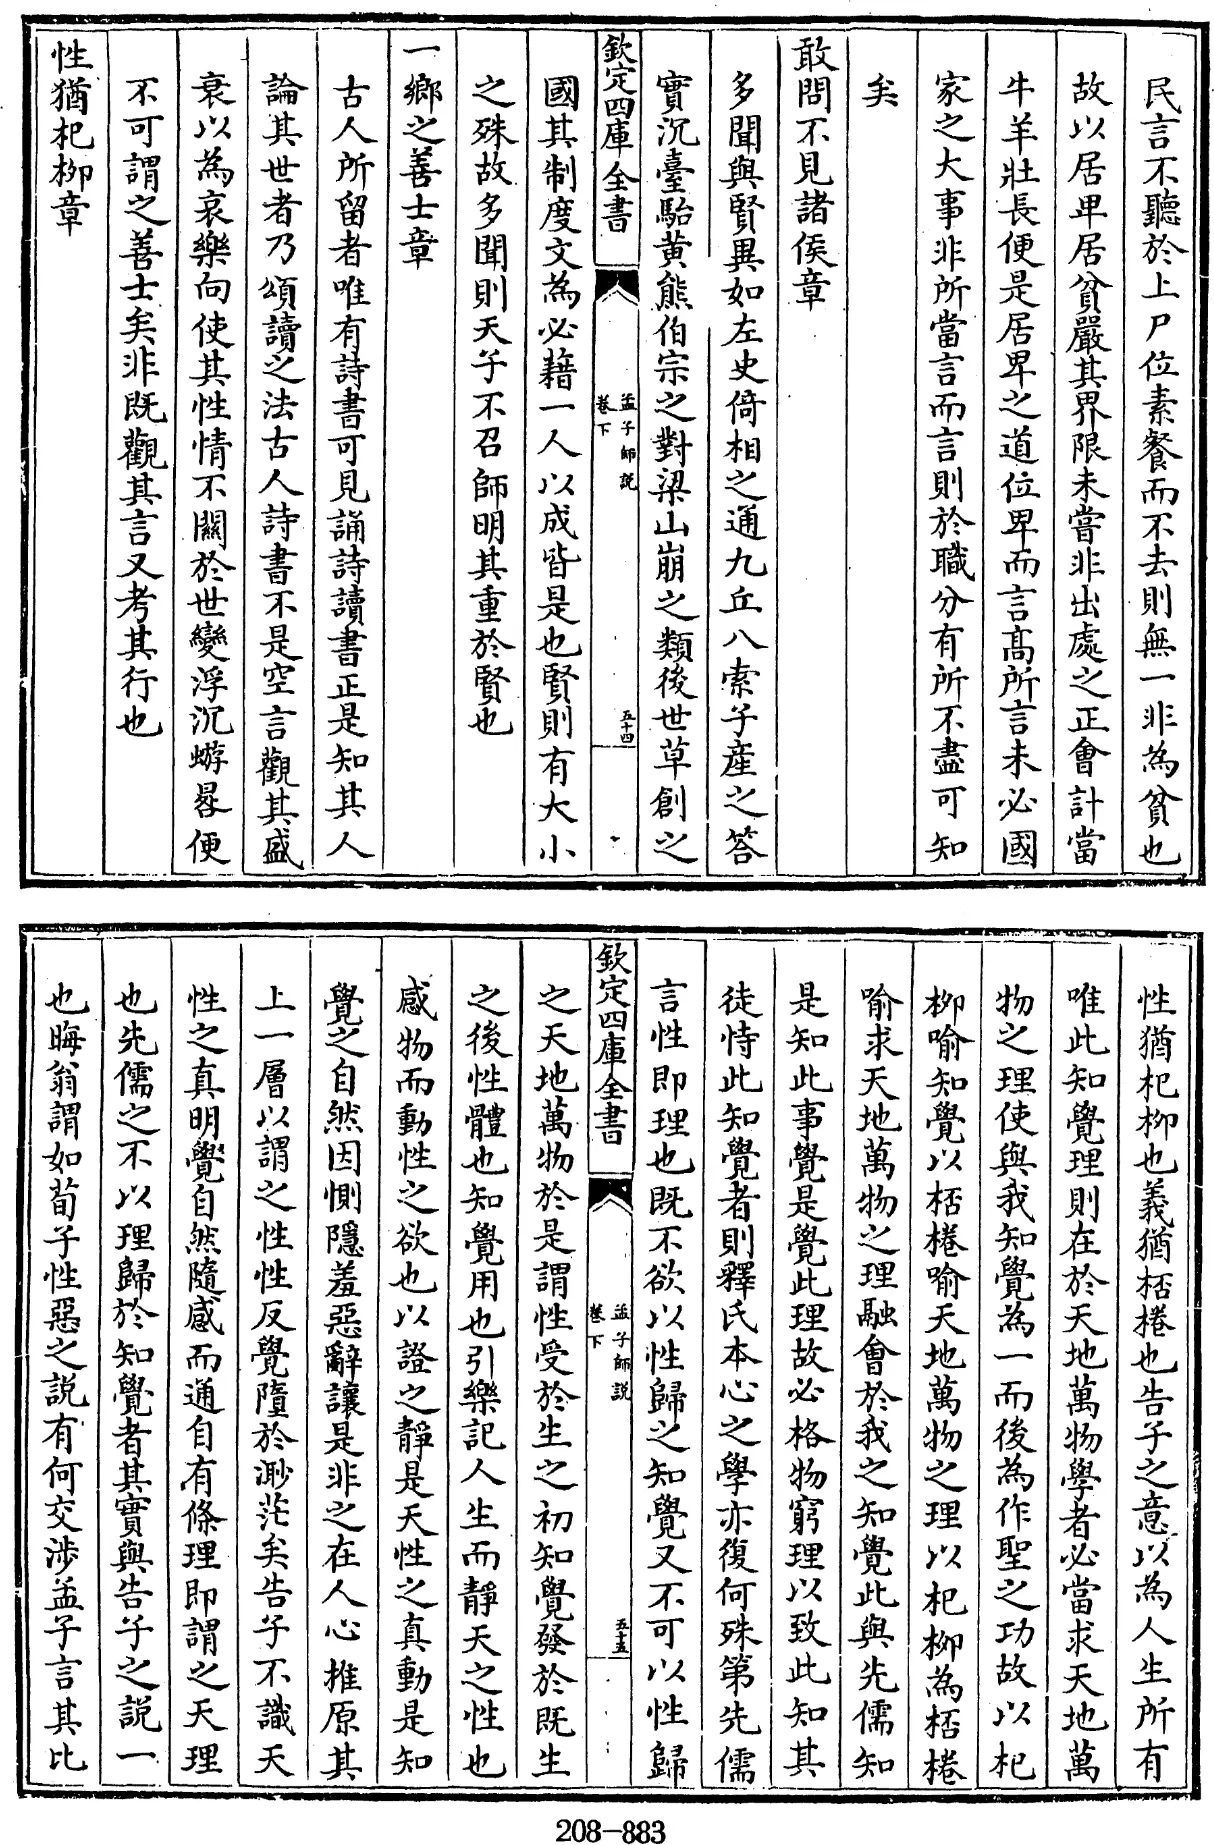 民言不聽於上尸位素餐而不去則無一非為貧也
故以居卑居貧嚴其界限未嘗非出處之正會計當
牛羊壯長便是居卑之道位卑而言髙所言未必國
家之大事非所當言而言則於職分有所不盡可知
矣
敢問不見諸侯章
多聞與賢異如左史倚相之通九丘八索子產之答
實沉臺駘黃熊伯宗之對梁山崩之類後世草創之
欽定四庫全書
孟子師說
卷下
五十四
國其制度文為必藉一人以成皆是也賢則有大小
之殊故多聞則天子不召師明其重於賢也
一鄉之善士章
古人所留者唯有詩書可見誦詩讀書正是知其人
論其世者乃頌讀之法古人詩書不是空言觀其盛
衰以為哀樂向使其性情不關於世變浮沉蝣晷便
不可謂之善士矣非既觀其言又考其行也
性猶杞柳章
性猶杞柳也義猶桮棬也告子之意以為人生所有
唯此知覺理則在於天地萬物學者必當求天地萬
物之理使與我知覺為一而後為作聖之功故以杞
柳喻知覺以桮棬喻天地萬物之理以杞柳為桮棬
喻求天地萬物之理融會於我之知覺此與先儒知
是知此事覺是覺此理故必格物窮理以致此知其
徒恃此知覺者則釋氏本心之學亦復何殊第先儒
言性即理也既不欲以性歸之知覺又不可以性歸
欽定四庫全書
孟子師說
卷下
五十五
之天地萬物於是謂性受於生之初知覺發於既生
之後性體也知覺用也引樂記人生而靜天之性也
感物而動性之欲也以證之靜是天性之真動是知
覺之自然因惻隱羞惡辭讓是非之在人心推原其
上一層以謂之性性反覺墮於渺茫矣告子不識天
性之真明覺自然隨感而通自有條理即謂之天理
也先儒之不以理歸於知覺者其實與告子之說一
也晦翁謂如荀子性惡之說有何交涉孟子言其比
208-883